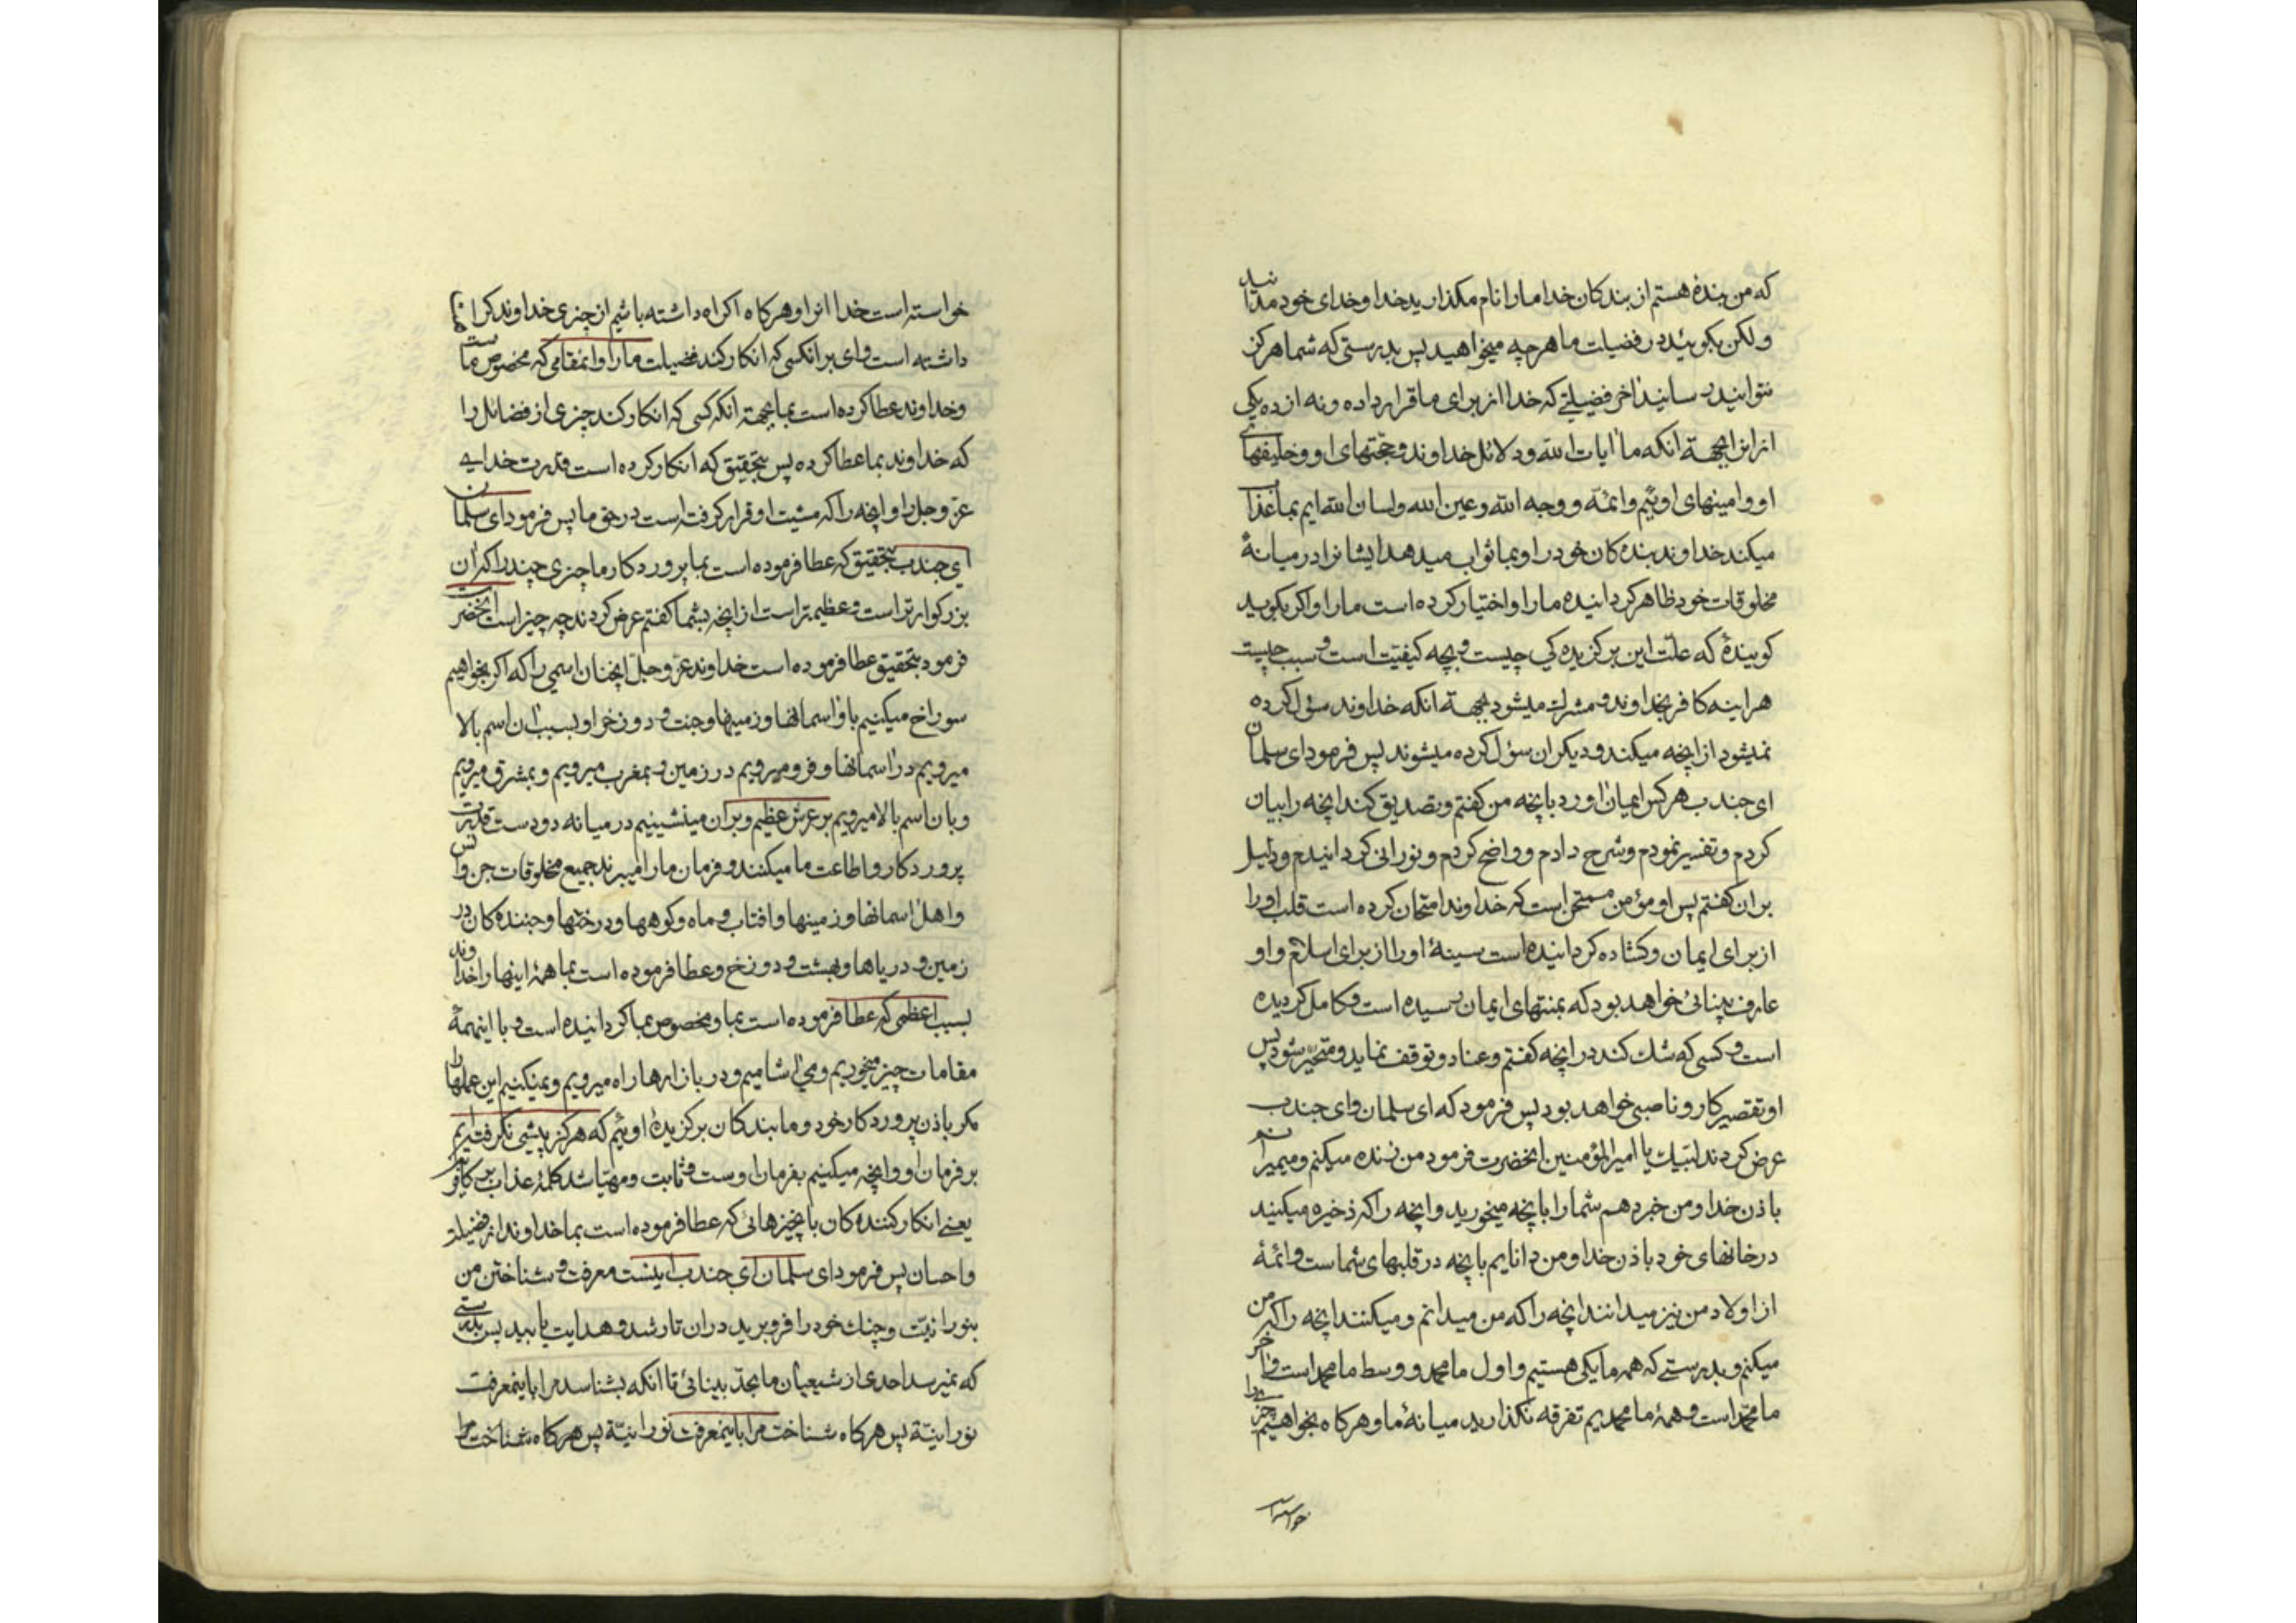 که من بندهٔ هستم از بندکان خدا مارا نام مکذارید خدا و خدای خود مدانید
ولکن بکوئید در فضیلت ما هرچه میخواهید پس بدرستی که شما هرکز
نتوانید رسانید اخر فضیلتی که خدا از برای ما قرار داده و نه از ده یکی
از انرا بجهة آنکه ما ایات الله و دلائل خداوند و حجّتهای او و خلیفهای
او و امینهای اوئیم و ائمّه و وجه الله و عین الله و لسان الله ایم بما عذاب
میکند خداوند بنده کان خود را و بما ثواب میدهد ایشانرا در میانهٔ
مخلوقات خود ظاهر کردانیده مارا و اختیار کرده است مارا و اکر بکوید
کویندهٔ که علّت این برکزیده کی چیست و بچه کیفیّت است و سبب چیست
هراینه کافر بخداوند و مشرک میشود بجهة انکه خداوند سؤل کرده
نمیشود از انچه میکند و دیکران سؤل کرده میشوند پس فرمود ای سلمان
ای جندب هرکس ایمان اورد بانچه من کفتم و تصدیق کند انچه را بیان
کردم و تفسیر نمودم و شرح دادم و واضح کردم و نورانی کردانیدم و دلیل
بران کفتم پس او مؤمن ممتحن است که خداوند امتحان کرده است قلب او را
از برای ایمان و کشاده کردانیده است سینهٔ اورا از برای اسلام و او
عارف بینائی خواهد بود که بمنتهای ایمان رسیده است و کامل کردیده
است و کسی که شک کند در انچه کفتم و عناد و توقف نماید و متحیّر شود پس
او تقصیر کار و ناصبی خواهد بود پس فرمود که ای سلمان و ای جندب
عرض کردند لبّیک یا امیرالمؤمنین انحضرت فرمود من زنده میکنم و میمیرانم
باذن خدا و من خبر دهم شما را بانچه میخورید و انچه را که ذخیره میکنید
در خانهای خود باذن خدا و من دانایم بانچه در قلبهای شماست و ائمهٔ
از اولاد من نیز میدانند انچه را که من میدانم و میکنند انچه را که من
میکنم و بدرستی که همه ما یکی هستیم و اول ما محمد و وسط ما محمد است و آخر
ما محمّد است و همهٔ ما محمدیم تفرقه نکذارید میانهٔ ما و هرکاه بخواهیم چیزیرا
خواسته است
خواسته است خدا انرا و هرکاه اکراه داشته باشیم از چیزی خداوند کراهة
داشته است وای بر انکسی که انکار کند فضیلت مارا و انمقامی که مخصوص ماست
و خداوند عطا کرده است بما بجهة انکه کسی که انکار کند چیزی از فضائل را
که خداوند بما عطا کرده پس بتحقیق که انکار کرده است قدرت خدایی
عزّ و جلّ را و انچه را که مشیت او قرار کرفته است در حق ما پس فرمود ای سلمان
ای جندب بتحقیق که عطا فرموده است بما پروردکار ما چیزی چند را که ان
بزرکوارتر است و عظیم تر است از انچه بشما کفتم عرض کردند چه چیز است انحضرت
فرمود بتحقیق عطا فرموده است خداوند عزّ و جلّ انچنان اسمی را که اکر بخواهیم
سوراخ میکنیم باو اسمانها و زمینها و جنت و دوزخ را و بسبب ان اسم بالا
میرویم در اسمانها و فرو میرویم در زمین و بمغرب میرویم و بمشرق میرویم
و بان اسم بالا میرویم بر عرش عظیم و بران مینشینیم در میانه دو دست قدرت
پروردکار و اطاعت ما میکنند و فرمان مارا میبرند جمیع مخلوقات جن و انس
و اهل اسمانها و زمینها و افتاب و ماه و کوهها و درختها و جنبنده کان در
زمین و دریاها و بهشت و دوزخ و عطا فرموده است بما همهٔ اینها را خداوند
بسبب اعظمی که عطا فرموده است بما و مخصوص بما کردانیده است و با اینهمهٔ
مقامات چیز میخوریم و می اشامیم و در بازارها راه میرویم و نمیکنیم این عملها را
مکر باذن پروردکار خود و ما بندکان برکزیدهٔ اوئیم که هرکز پیشی نکرفته ایم
بر فرمان او و انچه میکنیم بفرمان اوست و ثابت و مهیّا شد کلمهٔ عذاب بر کافرین
یعنی انکار کننده کان بانچیزهائی که عطا فرموده است بما خداوند از فضیلت
و احسان پس فرمود ای سلمان ای جندب اینست معرفت و شناختن من
بنورانیّت و چنک خود را فرو برید در ان تا رشد و هدایت یابید پس بدرستی
که نمیرسد احدی از شیعیان ما بحدّ بینائی تا انکه بشناسد مرا باینمعرفت
نورانیّة پس هرکاه شناخت مرا باینمعرفت نورانیّة پس هرکاه شناخت مرا